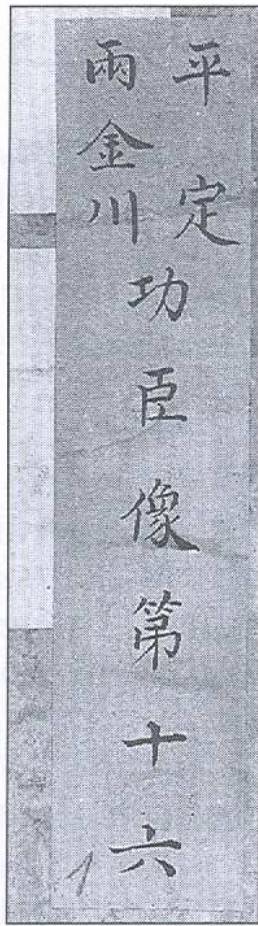 平定
兩金川
功臣像第十六
1